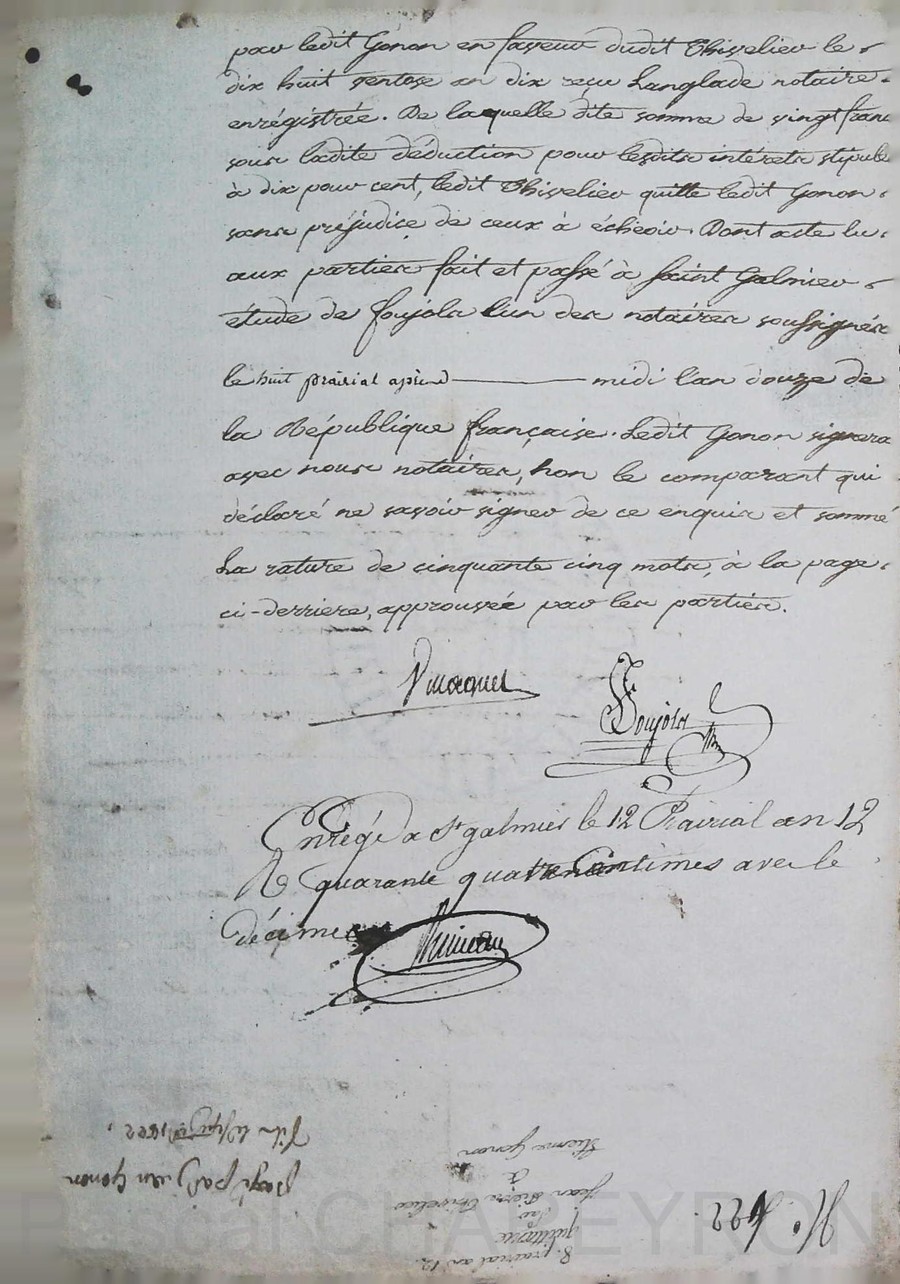 pour ledit Gonon en faveur dudit Thivelier le
dix huit ventose an dix reçu Langlade notaire
enrégistrée. De laquelle dite somme de vingt franc
sous ladite déduction pour lesdits intérets stipulé
à dix pour cent, ledit Thivelier quitte ledit Gonon
sans préjudice de ceux à écheoir. Dont acte lu
aux parties fait et passé à Saint Galmier
étude de Foujols l'un des notaires soussignés
le huit prairial après midi l'an douze de
la République française. Ledit Gonon signera
avec nous notaires, non le comparant qui
déclaré ne savoir signer de ce enquis et sommé
La rature de cinquante cinq mots, à la page
ci-derriere, approuvée par les parties.
Foujols
Enregé a St galmier le 12 Prairial an 12
R quarante quatre Centimes avec le
décime
8. prairial an 12.
quittance
Jean Pierre Thivelier
à
Etienne Gonon
No. 122
Pascal CHAPEYRON